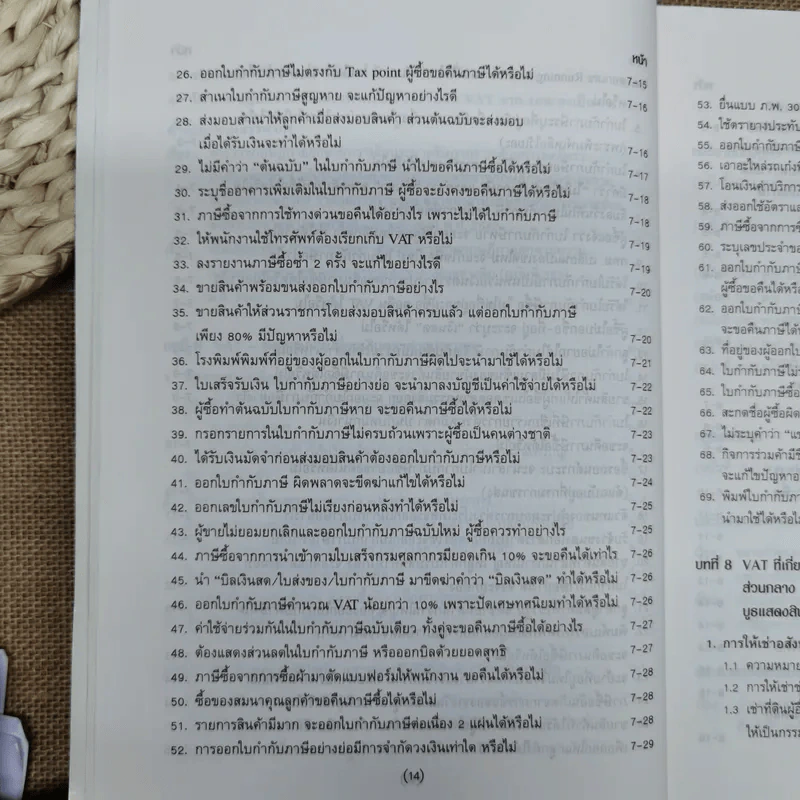 หน้า
26. ออกใบกำกับภาษีไม่ตรงกับ Tax point ผู้ซื้อขอคืนภาษีได้หรือไม่ 7-15
27. สำเนาใบกำกับภาษีสูญหาย จะแก้ปัญหาอย่างไรดี 7-16
28. ส่งมอบสำเนาให้ลูกค้าเมื่อส่งมอบสินค้า ส่วนต้นฉบับจะส่งมอบ
เมื่อได้รับเงินจะทำได้หรือไม่ 7-16
29. ไม่มีคำว่า "ต้นฉบับ" ในใบกำกับภาษี นำไปขอคืนภาษีซื้อได้หรือไม่ 7-17
30. ระบุชื่ออาคารเพิ่มเติมในใบกำกับภาษี ผู้ซื้อจะยังคงขอคืนภาษีได้หรือไม่ 7-18
31. ภาษีซื้อจากการใช้ทางด่วนขอคืนได้อย่างไร เพราะไม่ได้ใบกำกับภาษี 7-18
32. ให้พนักงานใช้โทรศัพท์ต้องเรียกเก็บ VAT หรือไม่ 7-19
33. ลงรายงานภาษีซื้อซ้ำ 2 ครั้ง จะแก้ไขอย่างไรดี 7-19
34. ขายสินค้าพร้อมขนส่งออกใบกำกับภาษีอย่างไร 7-20
35. ขายสินค้าให้ส่วนราชการโดยส่งมอบสินค้าครบแล้ว แต่ออกใบกำกับภาษี
เพียง 80% มีปัญหาหรือไม่ 7-20
36. โรงพิมพ์พิมพ์ที่อยู่ของผู้ออกในใบกำกับภาษีผิดไปจะนำมาใช้ได้หรือไม่ 7-21
37. ใบเสร็จรับเงิน ใบกำกับภาษีอย่างย่อ จะนำมาลงบัญชีเป็นค่าใช้จ่ายได้หรือไม่ 7-22
38. ผู้ซื้อทำต้นฉบับใบกำกับภาษีหาย จะขอคืนภาษีซื้อได้หรือไม่ 7-22
39. กรอกรายการในใบกำกับภาษีไม่ครบถ้วนเพราะผู้ซื้อเป็นคนต่างชาติ 7-23
40. ได้รับเงินมัดจำก่อนส่งมอบสินค้าต้องออกใบกำกับภาษีหรือไม่ 7-23
41. ออกใบกำกับภาษี ผิดพลาดจะขีดฆ่าแก้ไขได้หรือไม่ 7-24
42. ออกเลขใบกำกับภาษีไม่เรียงก่อนหลังทำได้หรือไม่ 7-25
43. ผู้ขายไม่ยอมยกเลิกและออกใบกำกับภาษีฉบับใหม่ ผู้ซื้อควรทำอย่างไร 7-25
44. ภาษีซื้อจากการนำเข้าตามใบเสร็จกรมศุลกากรมียอดเกิน 10% จะขอคืนได้เท่าไร 7-26
45. นำ "บิลเงินสด/ใบส่งของ/ใบกำกับภาษี มาขีดฆ่าคำว่า "บิลเงินสด" ทำได้หรือไม่ 7-26
46. ออกใบกำกับภาษีคำนวณ VAT น้อยกว่า 10% เพราะปัดเศษทศนิยมทำได้หรือไม่ 7-26
47. ค่าใช้จ่ายร่วมกันในใบกำกับภาษีฉบับเดียว ทั้งคู่จะขอคืนภาษีซื้อได้อย่างไร 7-27
48. ต้องแสดงส่วนลดในใบกำกับภาษี หรือออกบิลด้วยยอดสุทธิ 7-27
49. ภาษีซื้อจากการซื้อผ้ามาตัดแบบฟอร์มให้พนักงาน ขอคืนได้หรือไม่ 7-28
50. ซื้อของสมนาคุณลูกค้าขอคืนภาษีซื้อได้หรือไม่ 7-28
51. รายการสินค้ามีมาก จะออกใบกำกับภาษีต่อเนื่อง 2 แผ่นได้หรือไม่ 7-28
52. การออกใบกำกับภาษีอย่างย่อมีการจำกัดวงเงินเท่าใด หรือไม่ 7-29
(14)
53. ยื่นแบบ ภ.พ. 30
54. ใช้ตรายางประทับ
55. ออกใบกำกับภาษี
56. เอาอะไหล่รถเก๋ง
57. โอนเงินค่าบริการ
58. ส่งออกใช้อัตรา
59. ภาษีซื้อจากการ
60. ระบุเลขประจำ
61. ออกใบกำกับภาษี
ผู้ซื้อขอคืนได้
62. ออกใบกำกับภาษี
จะขอคืนภาษีได้
63. ที่อยู่ของผู้ออก
64. ใบกำกับภาษี
65. ใบกำกับภาษีซื้อ
66. สะกดชื่อผู้ซื้อผิด
67. ไม่ระบุคำว่า
68. กิจการร่วมค้า
จะแก้ไขปัญหา
69. พิมพ์ใบกำกับ
นำมาใช้ได้หรือ
บทที่ 8 VAT ที่
ส่วนกลาง
บูธแสดง
1. การให้เช่า
1.1 ความหมาย
1.2 การให้เช่า
1.3 เช่าที่ดิน
ให้เป็น